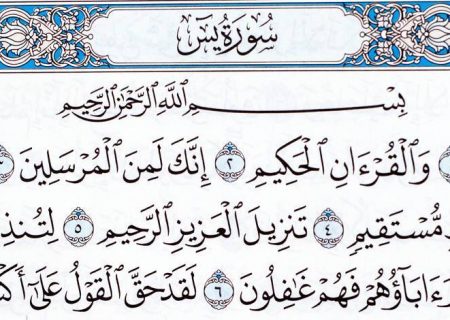 سُورَةُ يسٓ
بِسْمِ ٱللَّهِ ٱلرَّحْمَٰنِ ٱلرَّحِيمِ
وَٱلْقُرْءَانِ ٱلْحَكِيمِ ٢ إِنَّكَ لَمِنَ ٱلْمُرْسَلِينَ ٣
مُّسْتَقِيمٍ ٤ تَنزِيلَ ٱلْعَزِيزِ ٱلرَّحِيمِ ٥ لِتُنذِ
ءَابَآؤُهُمْ فَهُمْ غَٰفِلُونَ ٦ لَقَدْ حَقَّ ٱلْقَوْلُ عَلَىٰٓ أَكْ